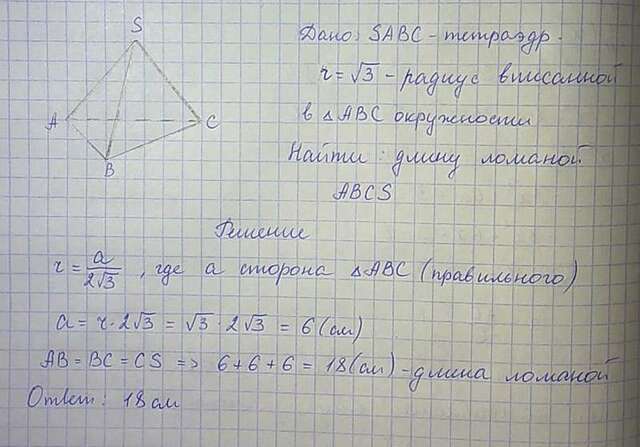 S
A
C
B
Дано: SABC - тетраэдр.
r = √3 - радиус вписанной
в △ABC окружности
Найти: длину ломаной
ABCS
Решение
r = a/2√3, где a сторона △ABC (правильного)
a = r · 2√3 = √3 · 2√3 = 6 (см)
AB = BC = CS => 6 + 6 + 6 = 18 (см) - длина ломаной
Ответ: 18 см